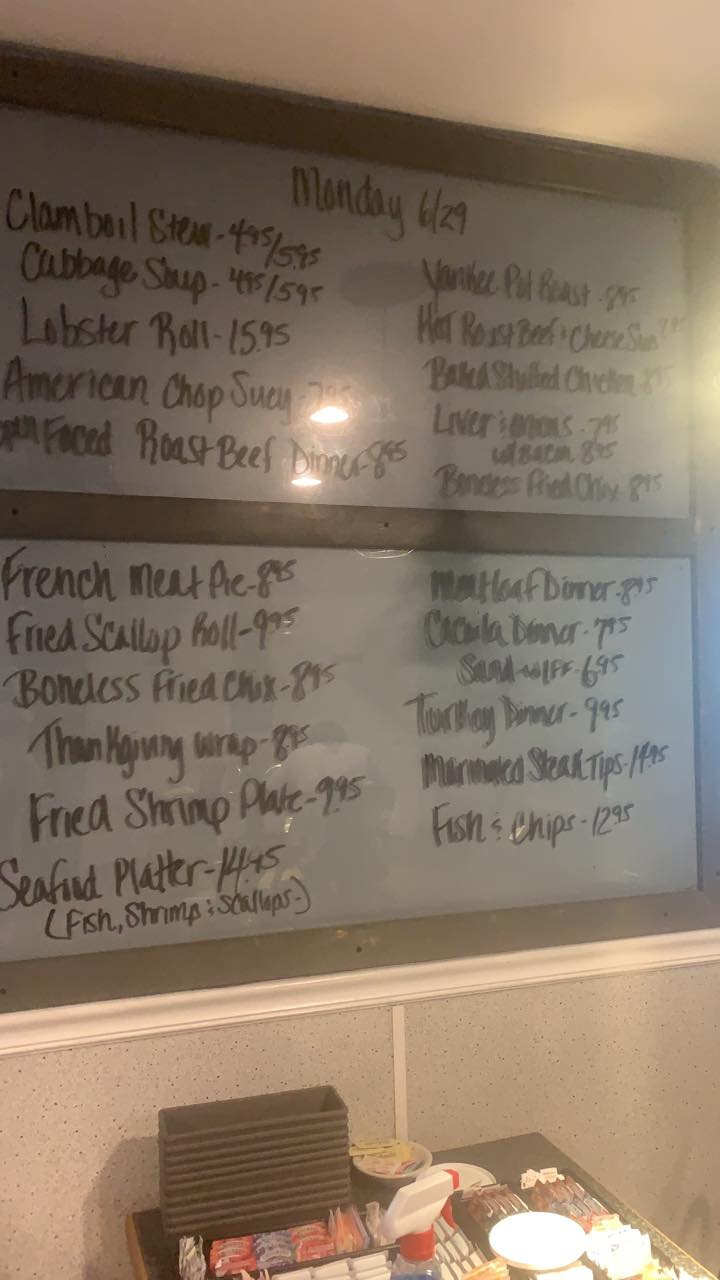 Monday 6/29
Clamboil Stew - 495/595
Cabbage Soup - 495/595
Lobster Roll - 15.95
American Chop Suey -
Faced Roast Beef Dinner - 895
Yankee Pot Roast - 895
Hot Roast Beef + Cheese
Baked Stuffed Chicken - 895
Liver & onions - 795
w/ Bacon 895
Boneless Fried Chix - 895
French Meat Pie - 895
Fried Scallop Roll - 995
Boneless Fried Chix - 895
Thankgiving wrap - 895
Fried Shrimp Plate - 995
Seafood Platter - 14.95
(Fish, Shrimp & Scallops -)
Meatloaf Dinner - 895
Cacoila Dinner - 795
Sand w/ FF - 695
Turkey Dinner - 995
Marinated Steak Tips - 14.95
Fish & Chips - 1295